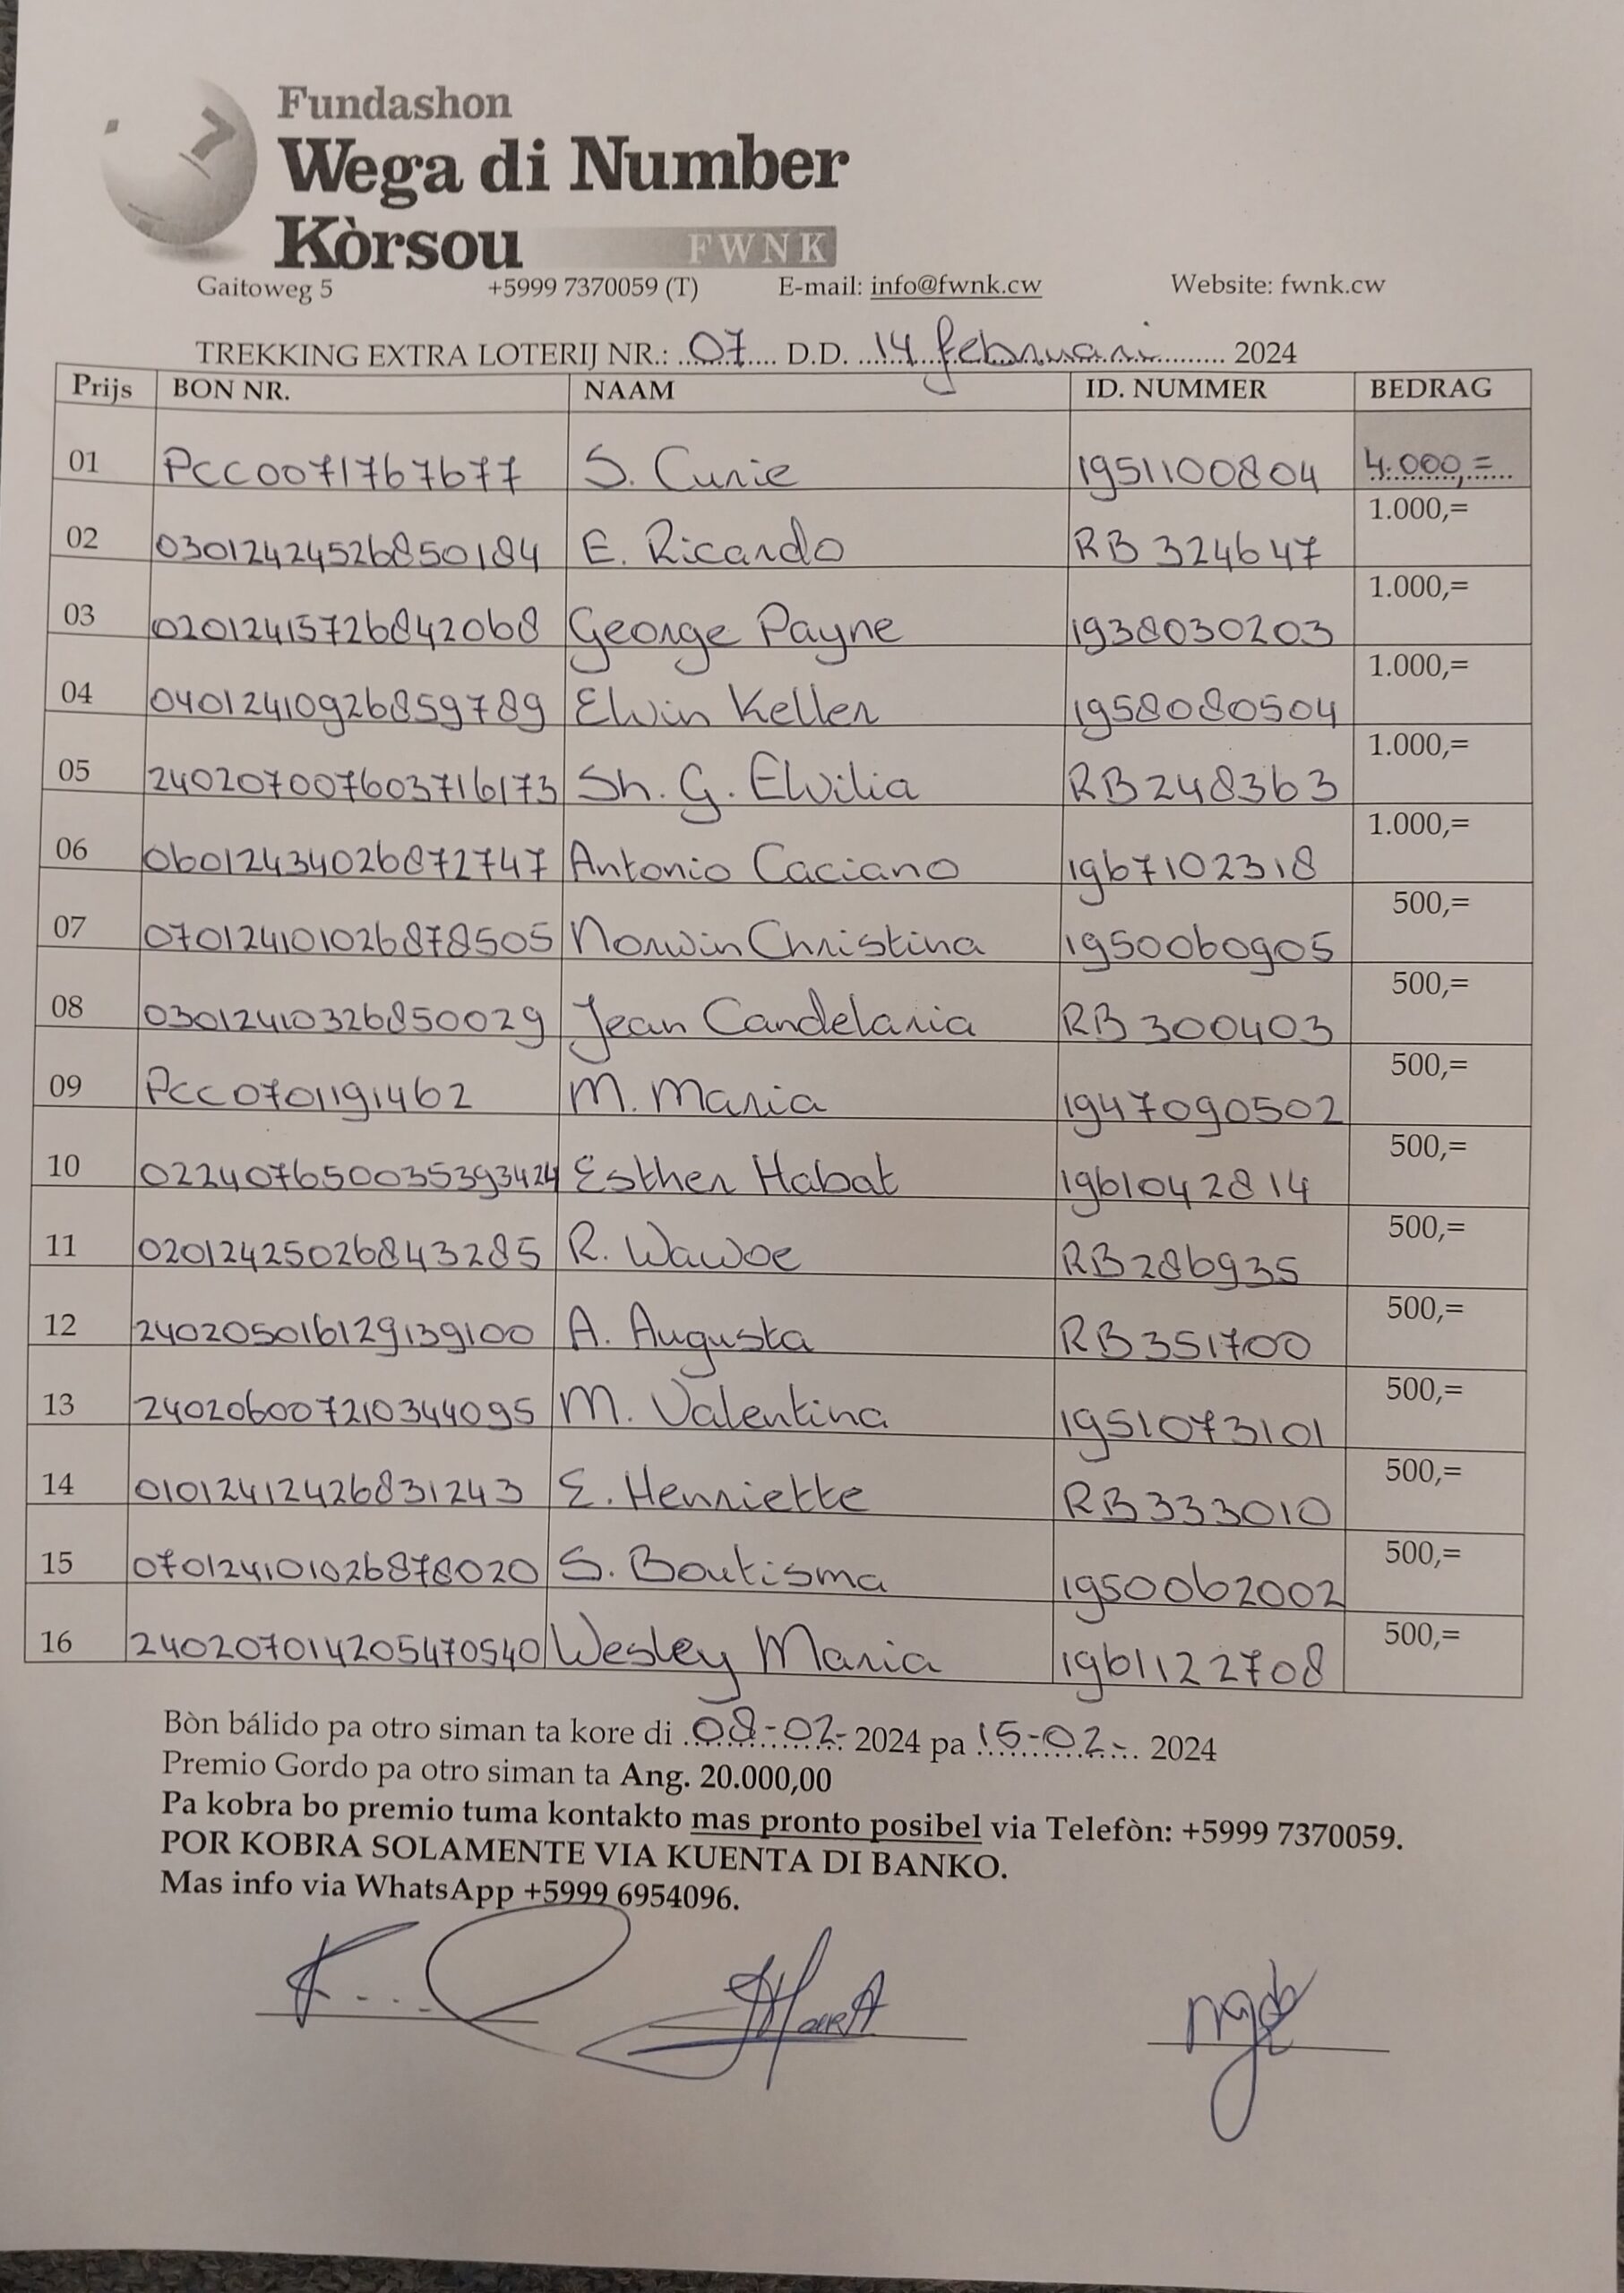 Fundashon
Wega di Number
Kòrsou FWNK
Gaitoweg 5 +5999 7370059 (T) E-mail: info@fwnk.cw Website: fwnk.cw
TREKKING EXTRA LOTERIJ NR.: 07 D.D. 14 februari 2024
Prijs BON NR. NAAM ID. NUMMER BEDRAG
01 PCC0071767677 S. Curie 1951100804 4.000,=
02 03012424526850184 E. Ricardo RB 324647 1.000,=
03 02012415726842068 George Payne 1938030203 1.000,=
04 04012410926859789 Elvin Keller 1958080504 1.000,=
05 240207007603716173 Sh. G. Elvilia RB248363 1.000,=
06 06012434026872747 Antonio Caciano 1967102318 1.000,=
07 07012410102 6878505 Norwin Christina 1950060905 500,=
08 03012410326850029 Jean Candelaria RB300403 500,=
09 PCC0701191462 M. Maria 1947090502 500,=
10 022407650035393424 Esther Habat 1961042814 500,=
11 02012425026843285 R. Wawoe RB286935 500,=
12 240205016129139100 A. Augusta RB351700 500,=
13 240206007210344095 M. Valentina 1951073101 500,=
14 01012412426831243 E. Henriette RB333010 500,=
15 07012410102 6878020 S. Boutisma 1950062002 500,=
16 240207014205470540 Wesley Maria 1961122708 500,=
Bòn bálido pa otro siman ta kore di 08-02- 2024 pa 15-02- 2024
Premio Gordo pa otro siman ta Ang. 20.000,00
Pa kobra bo premio tuma kontakto mas pronto posibel via Telefòn: +5999 7370059.
POR KOBRA SOLAMENTE VIA KUENTA DI BANKO.
Mas info via WhatsApp +5999 6954096.